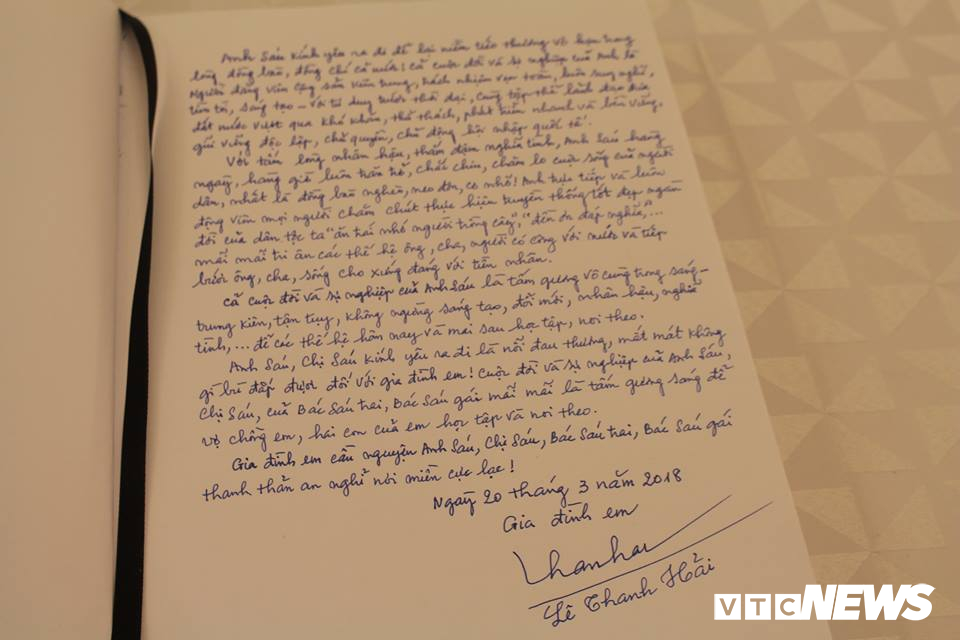 Anh Sáu kính yêu ra đi để lại niềm tiếc thương vô hạn trong
lòng đồng bào, đồng chí cả nước! Cả cuộc đời và sự nghiệp của Anh là
Người đảng viên cộng sản kiên trung, trách nhiệm vẹn toàn, luôn suy nghĩ,
tìm tòi, sáng tạo – với tư duy vượt thời đại, cùng tập thể lãnh đạo đưa
đất nước vượt qua khó khăn, thử thách, phát triển nhanh và bền vững,
giữ vững độc lập, chủ quyền, chủ động hội nhập quốc tế.
Với tấm lòng nhân hậu, thấm đậm nghĩa tình, Anh Sáu hàng
ngày, hàng giờ luôn trăn trở, chắt chiu, chăm lo cuộc sống của người
dân, nhất là đồng bào nghèo, neo đơn, cơ nhỡ! Anh trực tiếp và luôn
động viên mọi người chăm chút thực hiện truyền thống tốt đẹp ngàn
đời của dân tộc ta "ăn trái nhớ người trồng cây", "đền ơn đáp nghĩa",...
mãi mãi tri ân các thế hệ ông, cha, người có công với nước và tiếp
bước ông, cha, sống cho xứng đáng với tiền nhân.
Cả cuộc đời và sự nghiệp của Anh Sáu là tấm gương vô cùng trong sáng –
trung kiên, tận tụy, không ngừng sáng tạo, đổi mới, nhân hậu, nghĩa
tình,... để các thế hệ hôm nay và mai sau học tập, noi theo.
Anh Sáu, Chị Sáu kính yêu ra đi là nỗi đau thương, mất mát không
gì bù đắp được đối với gia đình em! Cuộc đời và sự nghiệp của Anh Sáu,
Chị Sáu, của Bác Sáu trai, Bác Sáu gái mãi mãi là tấm gương sáng để
vợ chồng em, hai con của em học tập và noi theo.
Gia đình em cầu nguyện Anh Sáu, Chị Sáu, Bác Sáu trai, Bác Sáu gái
thanh thản an nghỉ nơi miền cực lạc!
Ngày 20 tháng 3 năm 2018
Gia đình em
Thanhhai
Lê Thanh Hải
VTC NEWS